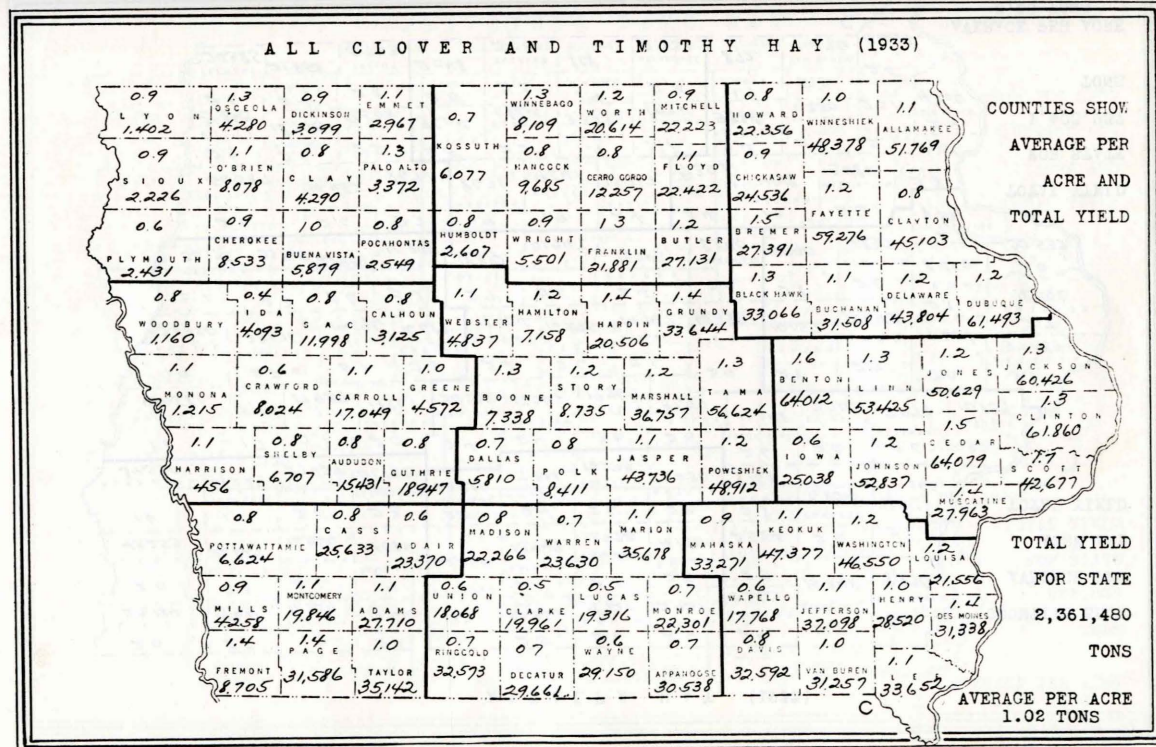 ALL CLOVER AND TIMOTHY HAY (1933)
COUNTIES SHOW
AVERAGE PER
ACRE AND
TOTAL YIELD
0.9
LYON
1.402
1.3
OSCEOLA
4.280
0.9
DICKINSON
3.099
1.1
EMMET
2.967
0.7
KOSSUTH
6.077
1.3
WINNEBAGO
8,109
1.2
WORTH
20.614
0.9
MITCHELL
22.223
0.8
HOWARD
22.356
1.0
WINNESHIEK
48.378
1.1
ALLAMAKEE
51.769
0.9
SIOUX
2.226
1.1
O'BRIEN
8.078
0.8
CLAY
4.290
1.3
PALO ALTO
3.372
0.8
HANCOCK
9,685
0.8
CERRO GORDO
12.257
1.1
FLOYD
22.422
0.9
CHICKASAW
24.536
1.2
FAYETTE
59,276
0.8
CLAYTON
45,103
0.6
PLYMOUTH
2.431
0.9
CHEROKEE
8.533
10
BUENA VISTA
5.879
0.8
POCAHONTAS
2.549
0.8
HUMBOLDT
2,607
0.9
WRIGHT
5.501
1 3
FRANKLIN
21.881
1.2
BUTLER
27.131
1.5
BREMER
27.391
0.8
WOODBURY
1.160
0.4
IDA
4.093
0.8
SAC
11.998
0.8
CALHOUN
3,125
1.1
WEBSTER
4.837
1.2
HAMILTON
7.158
1.4
HARDIN
20.506
1.4
GRUNDY
33.644
1.3
BLACK HAWK
33,066
1.1
BUCHANAN
31.508
1.2
DELAWARE
43,804
1.2
DUBUQUE
61,493
1.1
MONONA
1.215
0.6
CRAWFORD
8,024
1.1
CARROLL
17.049
1.0
GREENE
4.572
1.3
BOONE
7.338
1.2
STORY
8.735
1.2
MARSHALL
36.757
1.3
TAMA
56,624
1.6
BENTON
64.012
1.3
LINN
53.425
1.2
JONES
50,629
1.3
JACKSON
60,426
1.3
CLINTON
61.860
1.1
HARRISON
456
0.8
SHELBY
6.707
0.8
AUDUDON
15.431
0.8
GUTHRIE
18,947
0.7
DALLAS
5.810
0.8
POLK
8.411
1.1
JASPER
43,736
1.2
POWESHIEK
48,912
0.6
IOWA
25.038
1.2
JOHNSON
52,837
1.5
CEDAR
64,079
SCOTT
42,677
1.4
MUSCATINE
27.963
0.8
POTTAWATTAMIE
6.624
0.8
CASS
25,633
0.6
ADAIR
23.370
0.8
MADISON
22,266
0.7
WARREN
23.630
1.1
MARION
35,678
0.9
MAHASKA
33.271
1.1
KEOKUK
47.377
1.2
WASHINGTON
46,550
1.2
LOUISA
21,556
TOTAL YIELD
FOR STATE
2,361,480
TONS
0.9
MILLS
4258
1.1
MONTGOMERY
19,846
1.1
ADAMS
27.710
0.6
UNION
18.068
0.5
CLARKE
19,961
0.5
LUCAS
19.316
0.7
MONROE
22,301
0.6
WAPELLO
17.768
1.1
JEFFERSON
37,098
1.0
HENRY
28520
1.4
DES MOINES
31,338
1.4
FREMONT
8.705
1.4
PAGE
31,586
1.0
TAYLOR
35,142
0.7
RINGGOLD
32,573
07
DECATUR
29.661
0.6
WAYNE
29.150
0.7
APPANOOSE
30.538
0.8
DAVIS
32.592
1.0
VAN BUREN
31.257
1.1
LEE
33.652
C
AVERAGE PER ACRE
1.02 TONS